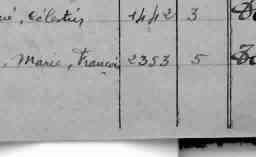 ué, Célestin 1442 3
, Marie, Françoi 2353 5